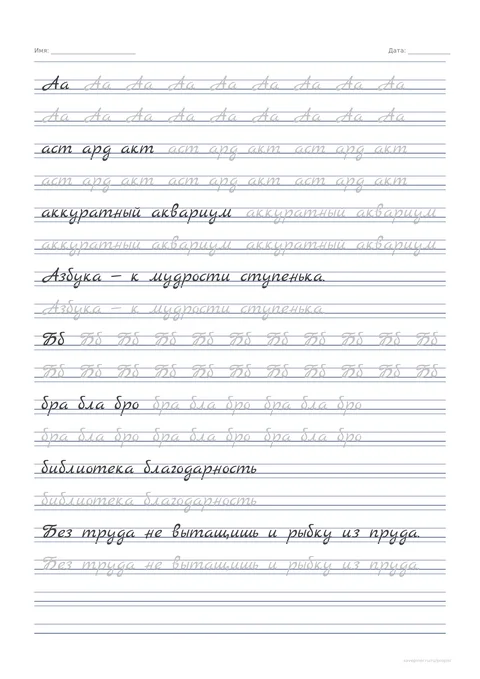 Имя: Дата:
Аа Аа Аа Аа Аа Аа Аа Аа Аа
Аа Аа Аа Аа Аа Аа Аа Аа Аа
аст ард акт аст ард акт аст ард акт
аст ард акт аст ард акт аст ард акт
аккуратный аквариум аккуратный аквариум
аккуратный аквариум аккуратный аквариум
Азбука – к мудрости ступенька.
Азбука – к мудрости ступенька
Бб Бб Бб Бб Бб Бб Бб Бб Бб Бб Бб
Бб Бб Бб Бб Бб Бб Бб Бб Бб Бб Бб
бра бла бро бра бла бро бра бла бро
бра бла бро бра бла бро бра бла бро
библиотека благодарность
библиотека благодарность
Без труда не вытащишь и рыбку из пруда.
Без труда не вытащишь и рыбку из пруда